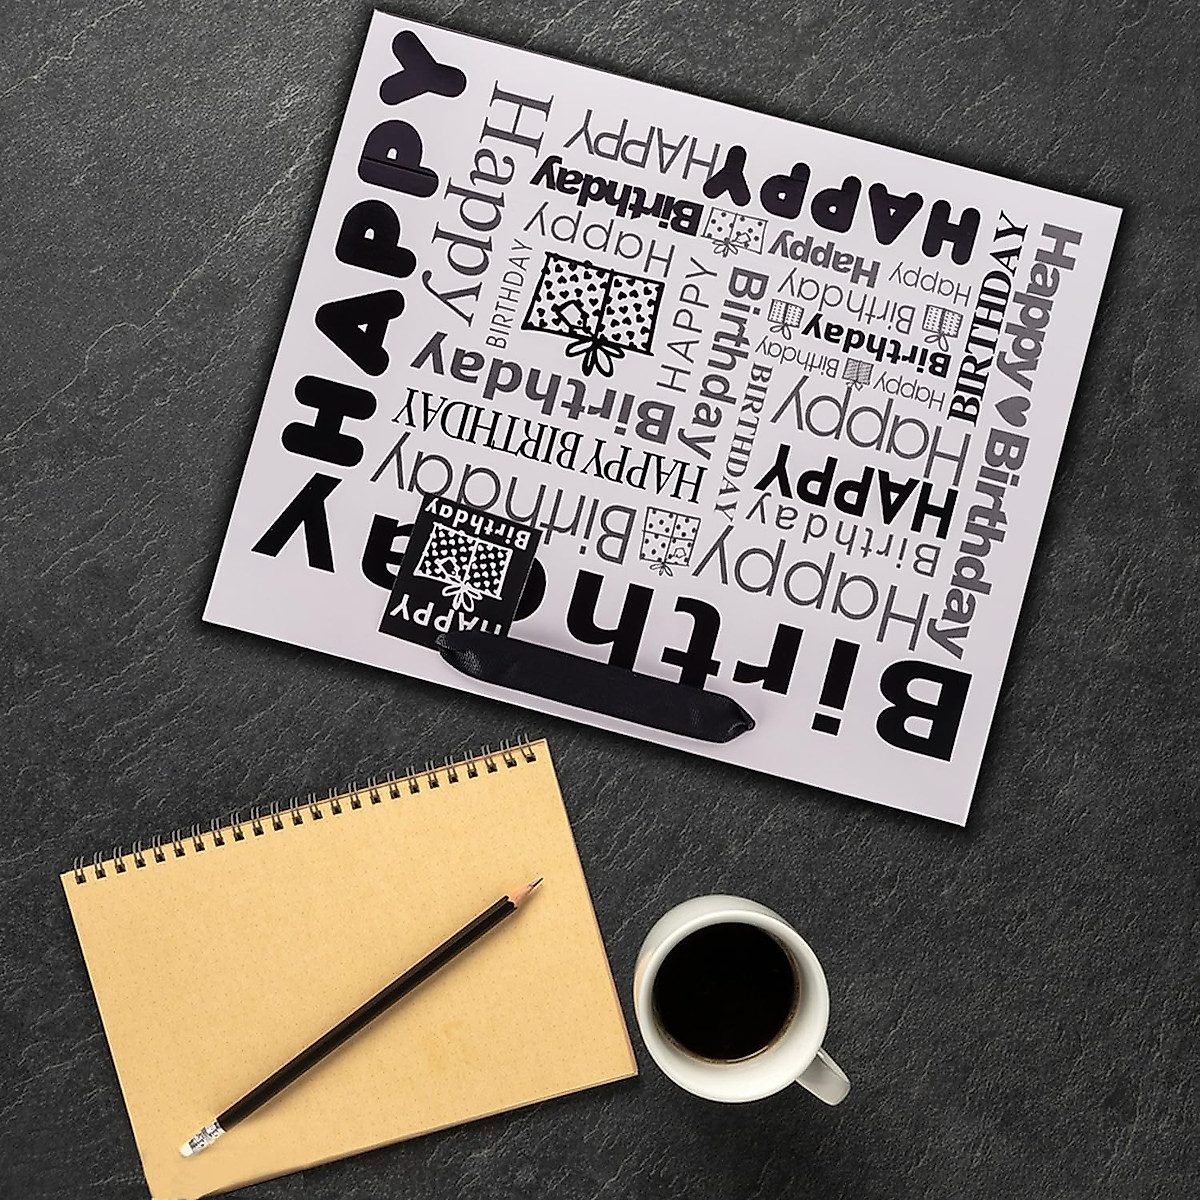 HAPPY
Birthday
HAPPY
Happy
BIRTHDAY
Birthday
HAPPY BIRTHDAY
Birthday
HAPPY
HAPPY
Birthday
Happy
HAPPY
Birthday
BIRTHDAY
HAPPY
Happy
Happy
Birthday
Birthday
Birthday
Birthday
Happy
Happy
HAPPY
Birthday
Happy
BIRTHDAY
Happy Birthday
HAPPY
Birthday